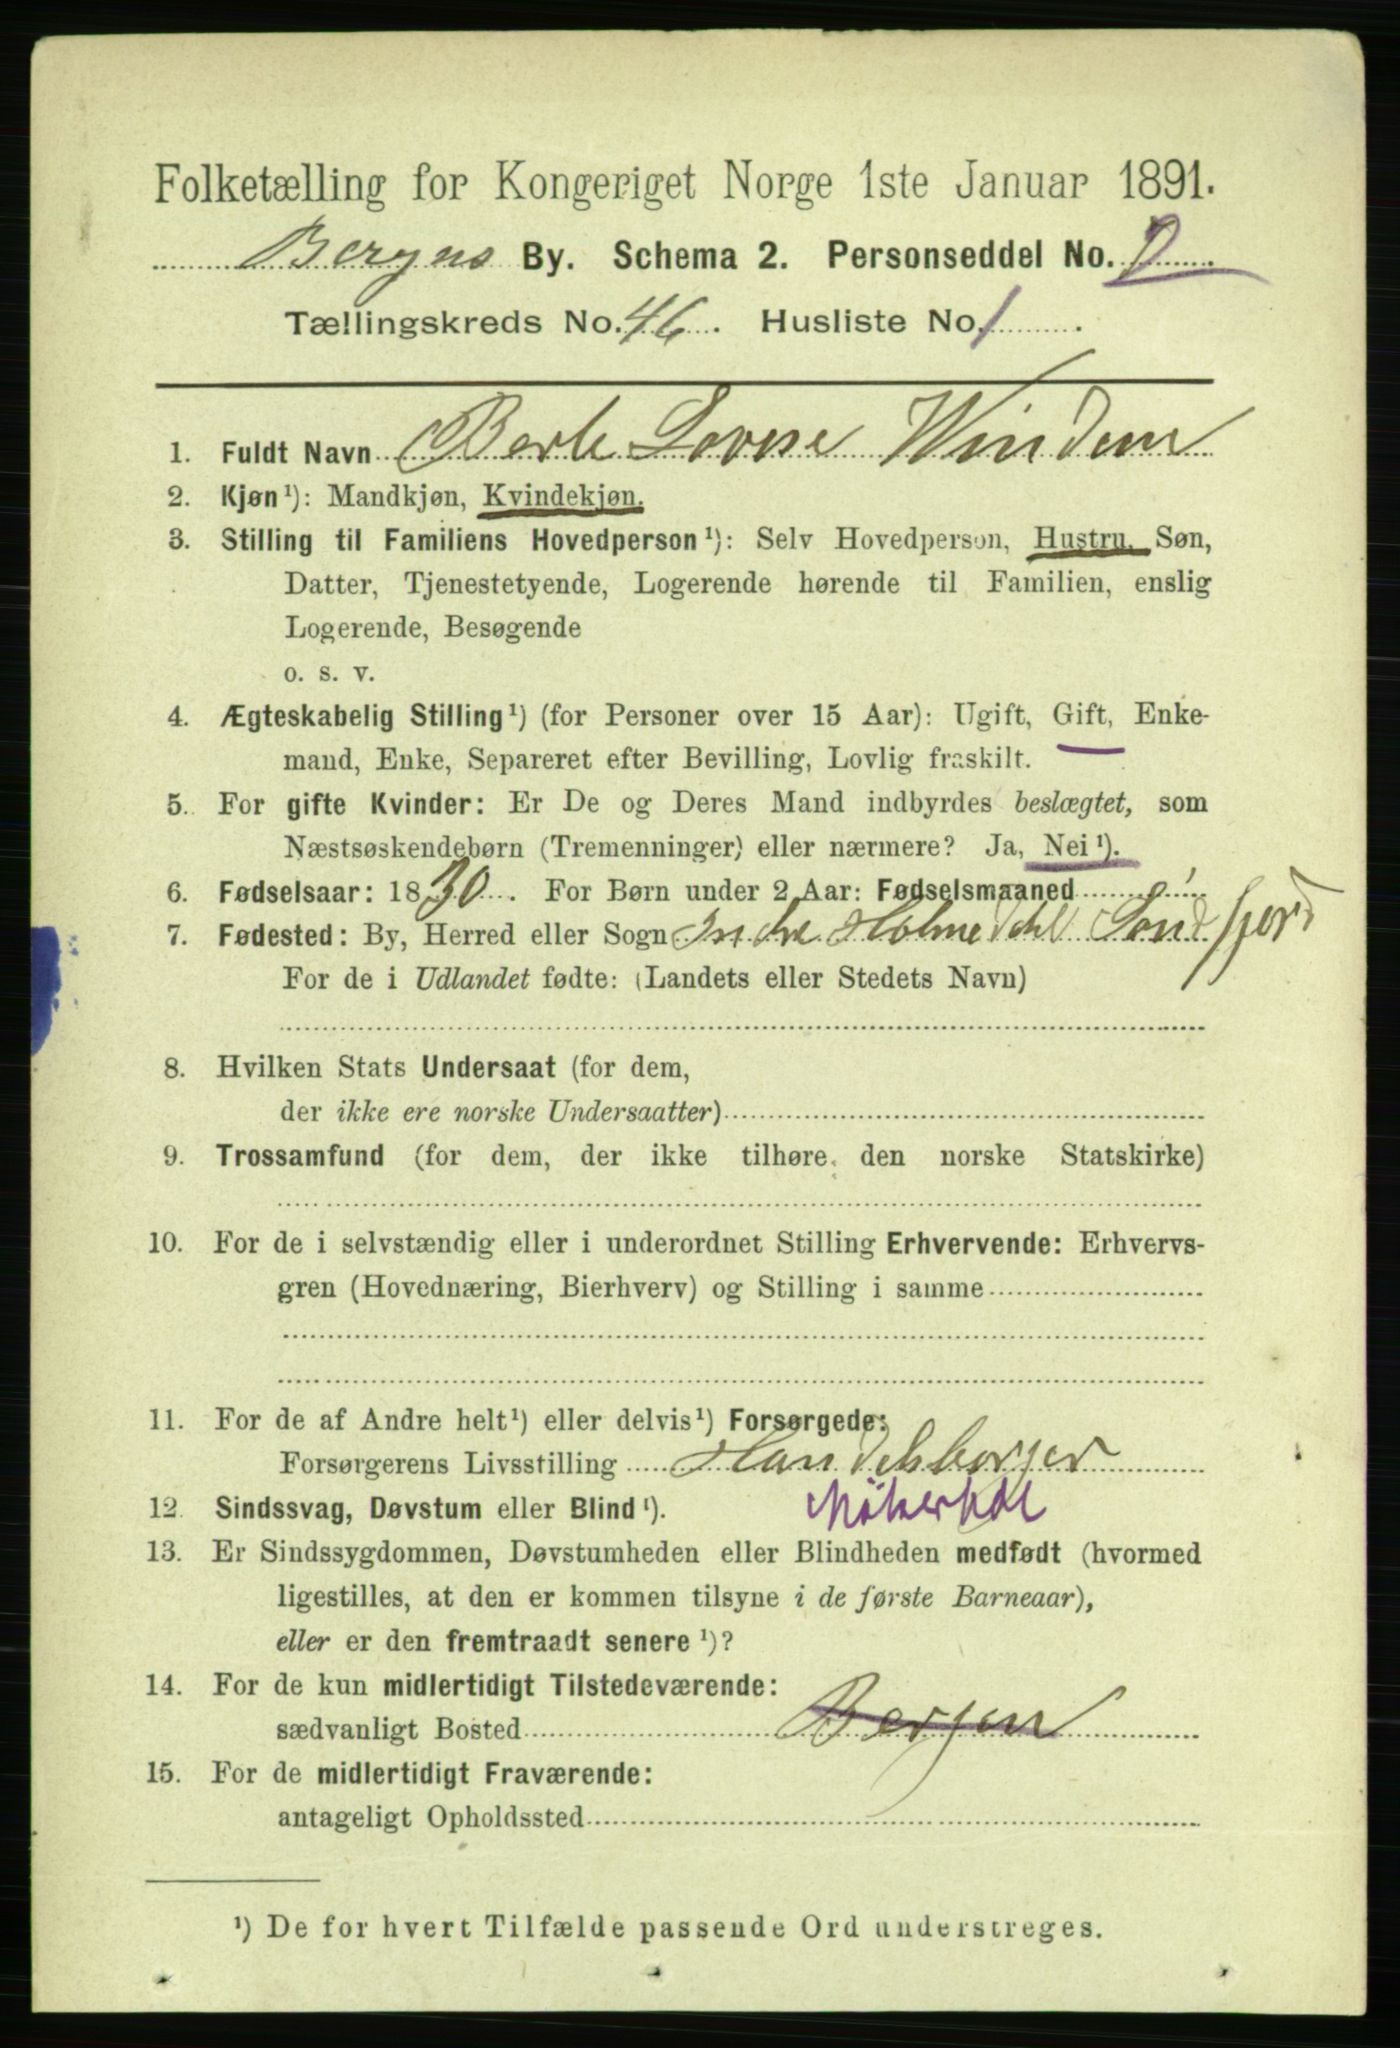 Folketælling for Kongeriget Norge 1ste Januar 1891.
Bergens By. Schema 2. Personseddel No.
Tællingskreds No. 46. Husliste No. 1.
1. Fuldt Navn Berte Lovise Windem
2. Kjøn¹): Mandkjøn, Kvindekjøn.
3. Stilling til Familiens Hovedperson¹): Selv Hovedperson, Hustru, Søn,
Datter, Tjenestetyende, Logerende hørende til Familien, enslig
Logerende, Besøgende
o. s. v.
4. Ægteskabelig Stilling¹) (for Personer over 15 Aar): Ugift, Gift, Enke-
mand, Enke, Separeret efter Bevilling, Lovlig fraskilt.
5. For gifte Kvinder: Er De og Deres Mand indbyrdes beslægtet, som
Næstsøskendebørn (Tremenninger) eller nærmere? Ja, Nei¹).
6. Fødselsaar: 1830. For Børn under 2 Aar: Fødselsmaaned
7. Fødested: By, Herred eller Sogn Indre Holmedahl Søndfjord
For de i Udlandet fødte: (Landets eller Stedets Navn)
8. Hvilken Stats Undersaat (for dem,
der ikke ere norske Undersaatter)
9. Trossamfund (for dem, der ikke tilhøre den norske Statskirke)
10. For de i selvstændig eller i underordnet Stilling Erhvervende: Erhvervs-
gren (Hovednæring, Bierhverv) og Stilling i samme
11. For de af Andre helt¹) eller delvis¹) Forsørgede:
Forsørgerens Livsstilling Handelsborger
12. Sindssvag, Døvstum eller Blind¹).
13. Er Sindssygdommen, Døvstumheden eller Blindheden medfødt (hvormed
ligestilles, at den er kommen tilsyne i de første Barneaar),
eller er den fremtraadt senere¹)?
14. For de kun midlertidigt Tilstedeværende:
sædvanligt Bosted Bergen
15. For de midlertidigt Fraværende:
antageligt Opholdssted
¹) De for hvert Tilfælde passende Ord understreges.